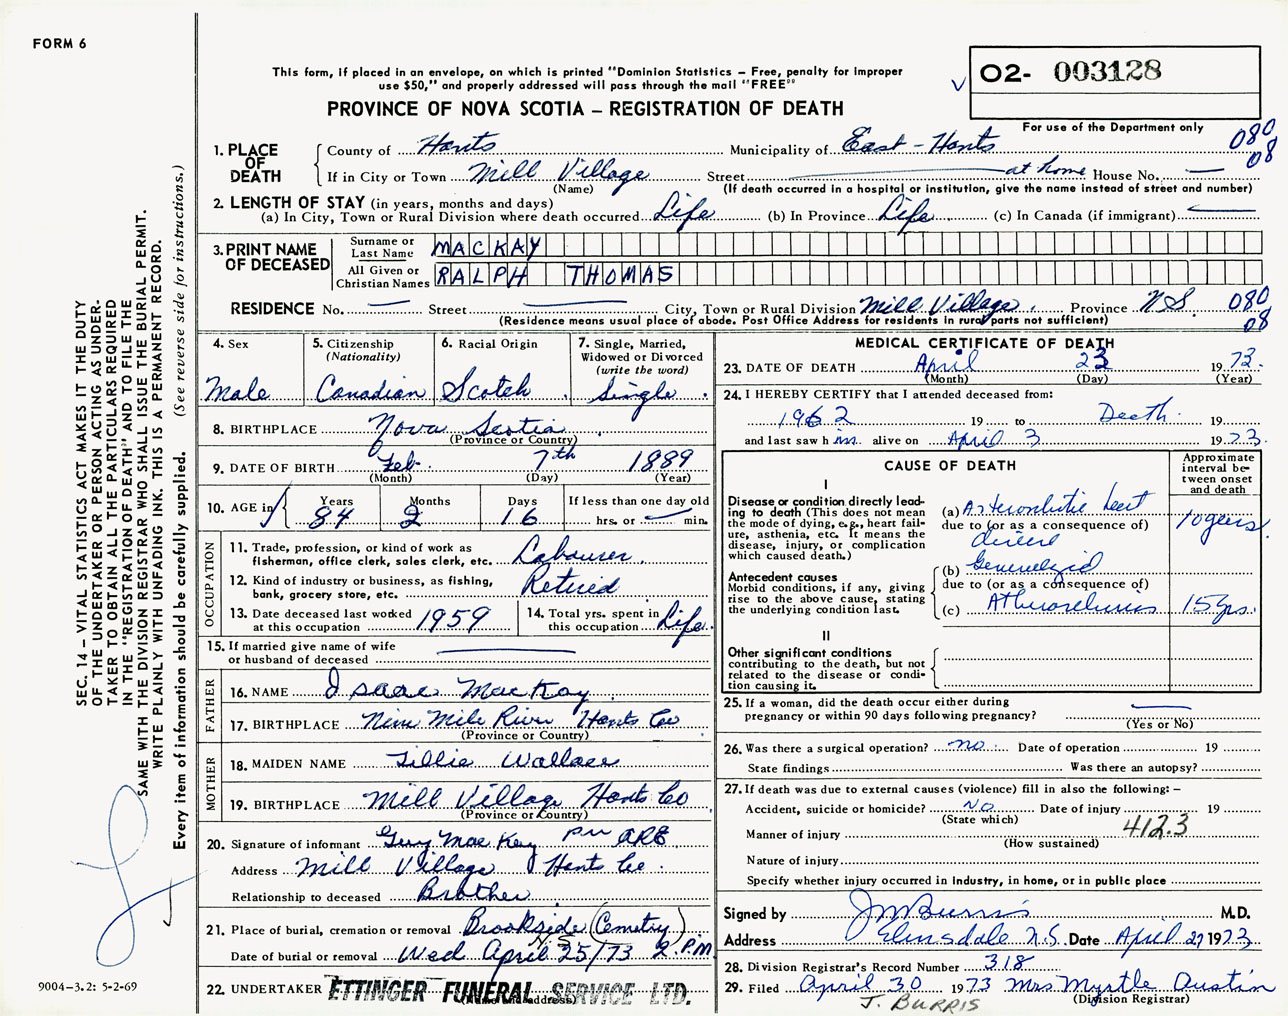 FORM 6
This form, if placed in an envelope, on which is printed "Dominion Statistics – Free, penalty for improper
use $50," and properly addressed will pass through the mail "FREE"
PROVINCE OF NOVA SCOTIA – REGISTRATION OF DEATH
02- 003128
For use of the Department only
1. PLACE OF DEATH
County of Hants Municipality of East - Hants 080
If in City or Town Mill Village Street at home House No. — 08
(Name) (If death occurred in a hospital or institution, give the name instead of street and number)
2. LENGTH OF STAY (in years, months and days)
(a) In City, Town or Rural Division where death occurred Life (b) In Province Life (c) In Canada (if immigrant) —
3. PRINT NAME OF DECEASED
Surname or Last Name MACKAY
All Given or Christian Names RALPH THOMAS
RESIDENCE No. — Street — City, Town or Rural Division Mill Village Province N.S. 080
(Residence means usual place of abode. Post Office Address for residents in rural parts not sufficient) 08
4. Sex
Male
5. Citizenship
(Nationality)
Canadian
6. Racial Origin
Scotch
7. Single, Married,
Widowed or Divorced
(write the word)
Single
8. BIRTHPLACE Nova Scotia
(Province or Country)
9. DATE OF BIRTH Feb. 7th 1889
(Month) (Day) (Year)
10. AGE in Years Months Days If less than one day old
84 2 16 hrs. or — min.
OCCUPATION
11. Trade, profession, or kind of work as
fisherman, office clerk, sales clerk, etc. Labourer
12. Kind of industry or business, as fishing,
bank, grocery store, etc. Retired
13. Date deceased last worked
at this occupation 1959
14. Total yrs. spent in
this occupation Life
15. If married give name of wife
or husband of deceased —
FATHER
16. NAME Isaac MacKay
17. BIRTHPLACE Nine Mile River Hants Co
(Province or Country)
MOTHER
18. MAIDEN NAME Tillie Wallace
19. BIRTHPLACE Mill Village Hants Co
(Province or Country)
20. Signature of informant Guy MacKay
Address Mill Village Hants Co.
Relationship to deceased Brother
21. Place of burial, cremation or removal Brookside (Cemetry)
N.S.
Date of burial or removal Wed April 25/73 2 P.M
22. UNDERTAKER ETTINGER FUNERAL SERVICE LTD.
(Name and address)
MEDICAL CERTIFICATE OF DEATH
23. DATE OF DEATH April 23 1973.
(Month) (Day) (Year)
24. I HEREBY CERTIFY that I attended deceased from:
1962 19 to Death 19
and last saw him alive on April 3 1973.
CAUSE OF DEATH
Approximate
interval be-
tween onset
and death
I
Disease or condition directly lead-
ing to death (This does not mean
the mode of dying, e.g., heart fail-
ure, asthenia, etc. It means the
disease, injury, or complication
which caused death.)
(a) heart
due to (or as a consequence of)
disease
10 years
Antecedent causes
Morbid conditions, if any, giving
rise to the above cause, stating
the underlying condition last.
(b) Generalyzid
due to (or as a consequence of)
(c) 15 yrs.
II
Other significant conditions
contributing to the death, but not
related to the disease or condi-
tion causing it.
25. If a woman, did the death occur either during
pregnancy or within 90 days following pregnancy? —
(Yes or No)
26. Was there a surgical operation? no Date of operation 19
State findings Was there an autopsy?
27. If death was due to external causes (violence) fill in also the following: –
Accident, suicide or homicide? No Date of injury 19
(State which) 412.3
Manner of injury
(How sustained)
Nature of injury
Specify whether injury occurred in industry, in home, or in public place
Signed by J M Burris M.D.
Address Elmsdale N.S. Date April 27 1973
28. Division Registrar's Record Number 318
29. Filed April 30 1973 Mrs Myrtle Austin
(Division Registrar)
J. BURRIS
SEC. 14 – VITAL STATISTICS ACT MAKES IT THE DUTY
OF THE UNDERTAKER OR PERSON ACTING AS UNDER-
TAKER TO OBTAIN ALL THE PARTICULARS REQUIRED
IN THE "REGISTRATION OF DEATH" AND TO FILE THE
SAME WITH THE DIVISION REGISTRAR WHO SHALL ISSUE THE BURIAL PERMIT.
WRITE PLAINLY WITH UNFADING INK. THIS IS A PERMANENT RECORD.
Every item of information should be carefully supplied. (See reverse side for instructions.)
9004-3.2: 5-2-69